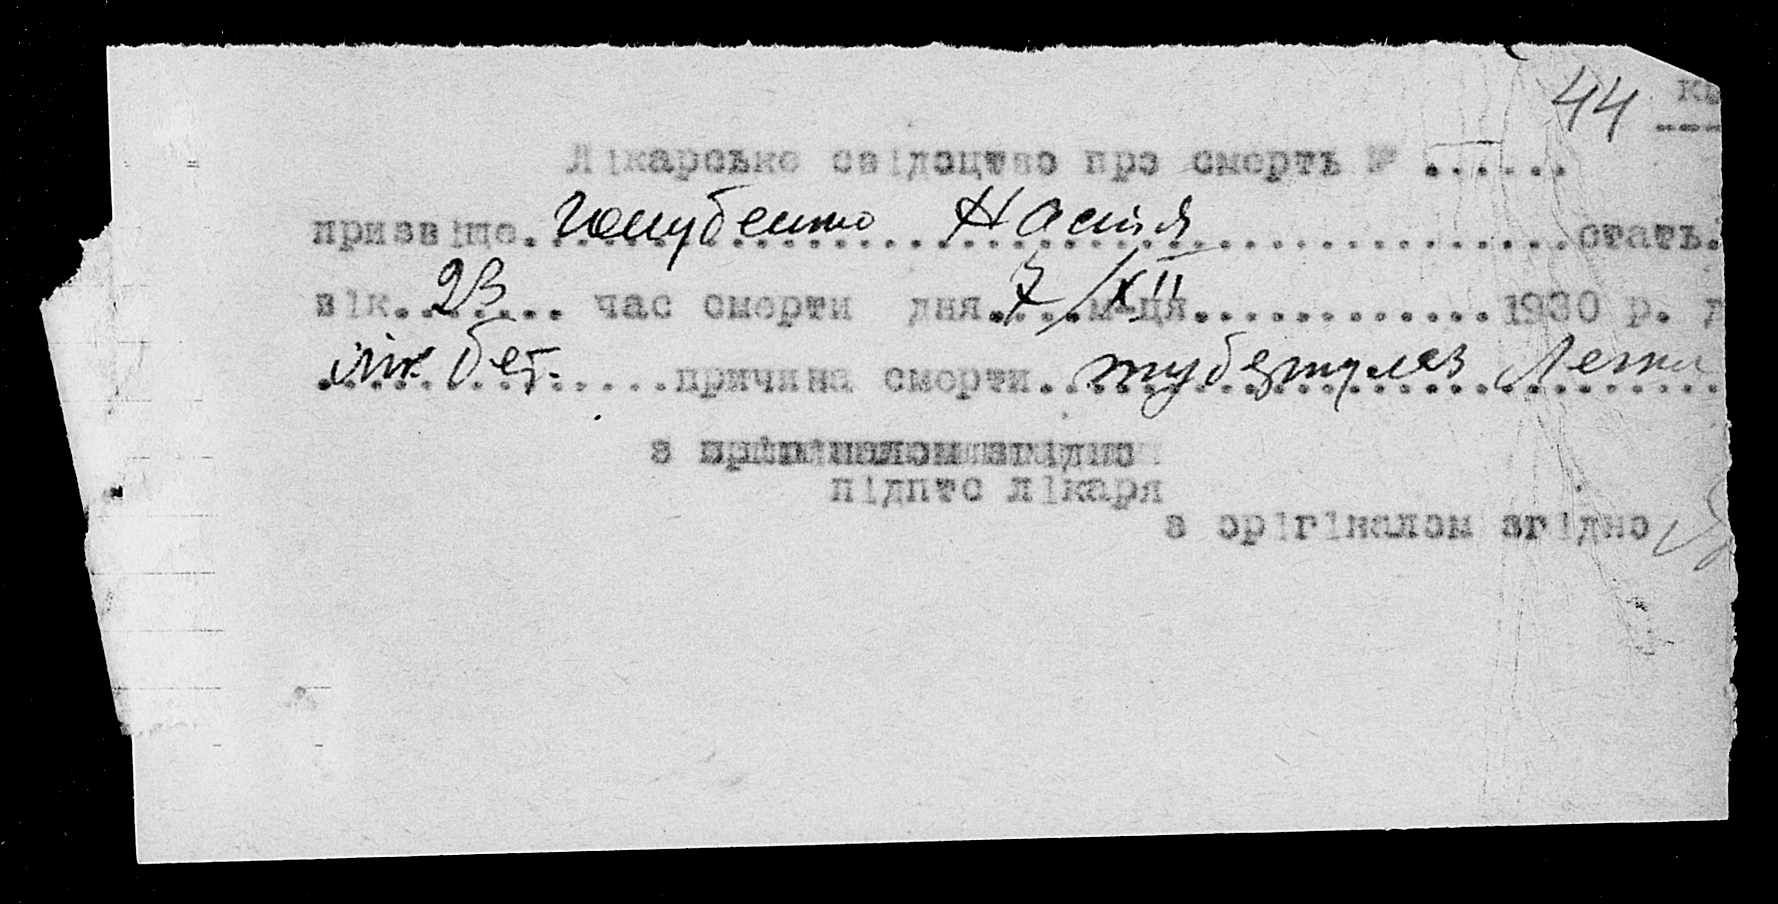 44
Лікарське свідоцтво про смерть №......
призвіще. Голубенко Настя ...стать.
вік. 23 ... час смерти дня. 7/XII м-ця............1930 р.
причина смерти. туберкулез Легк
з орігіналом згідно
підптс лікаря
з орігіналом згідно